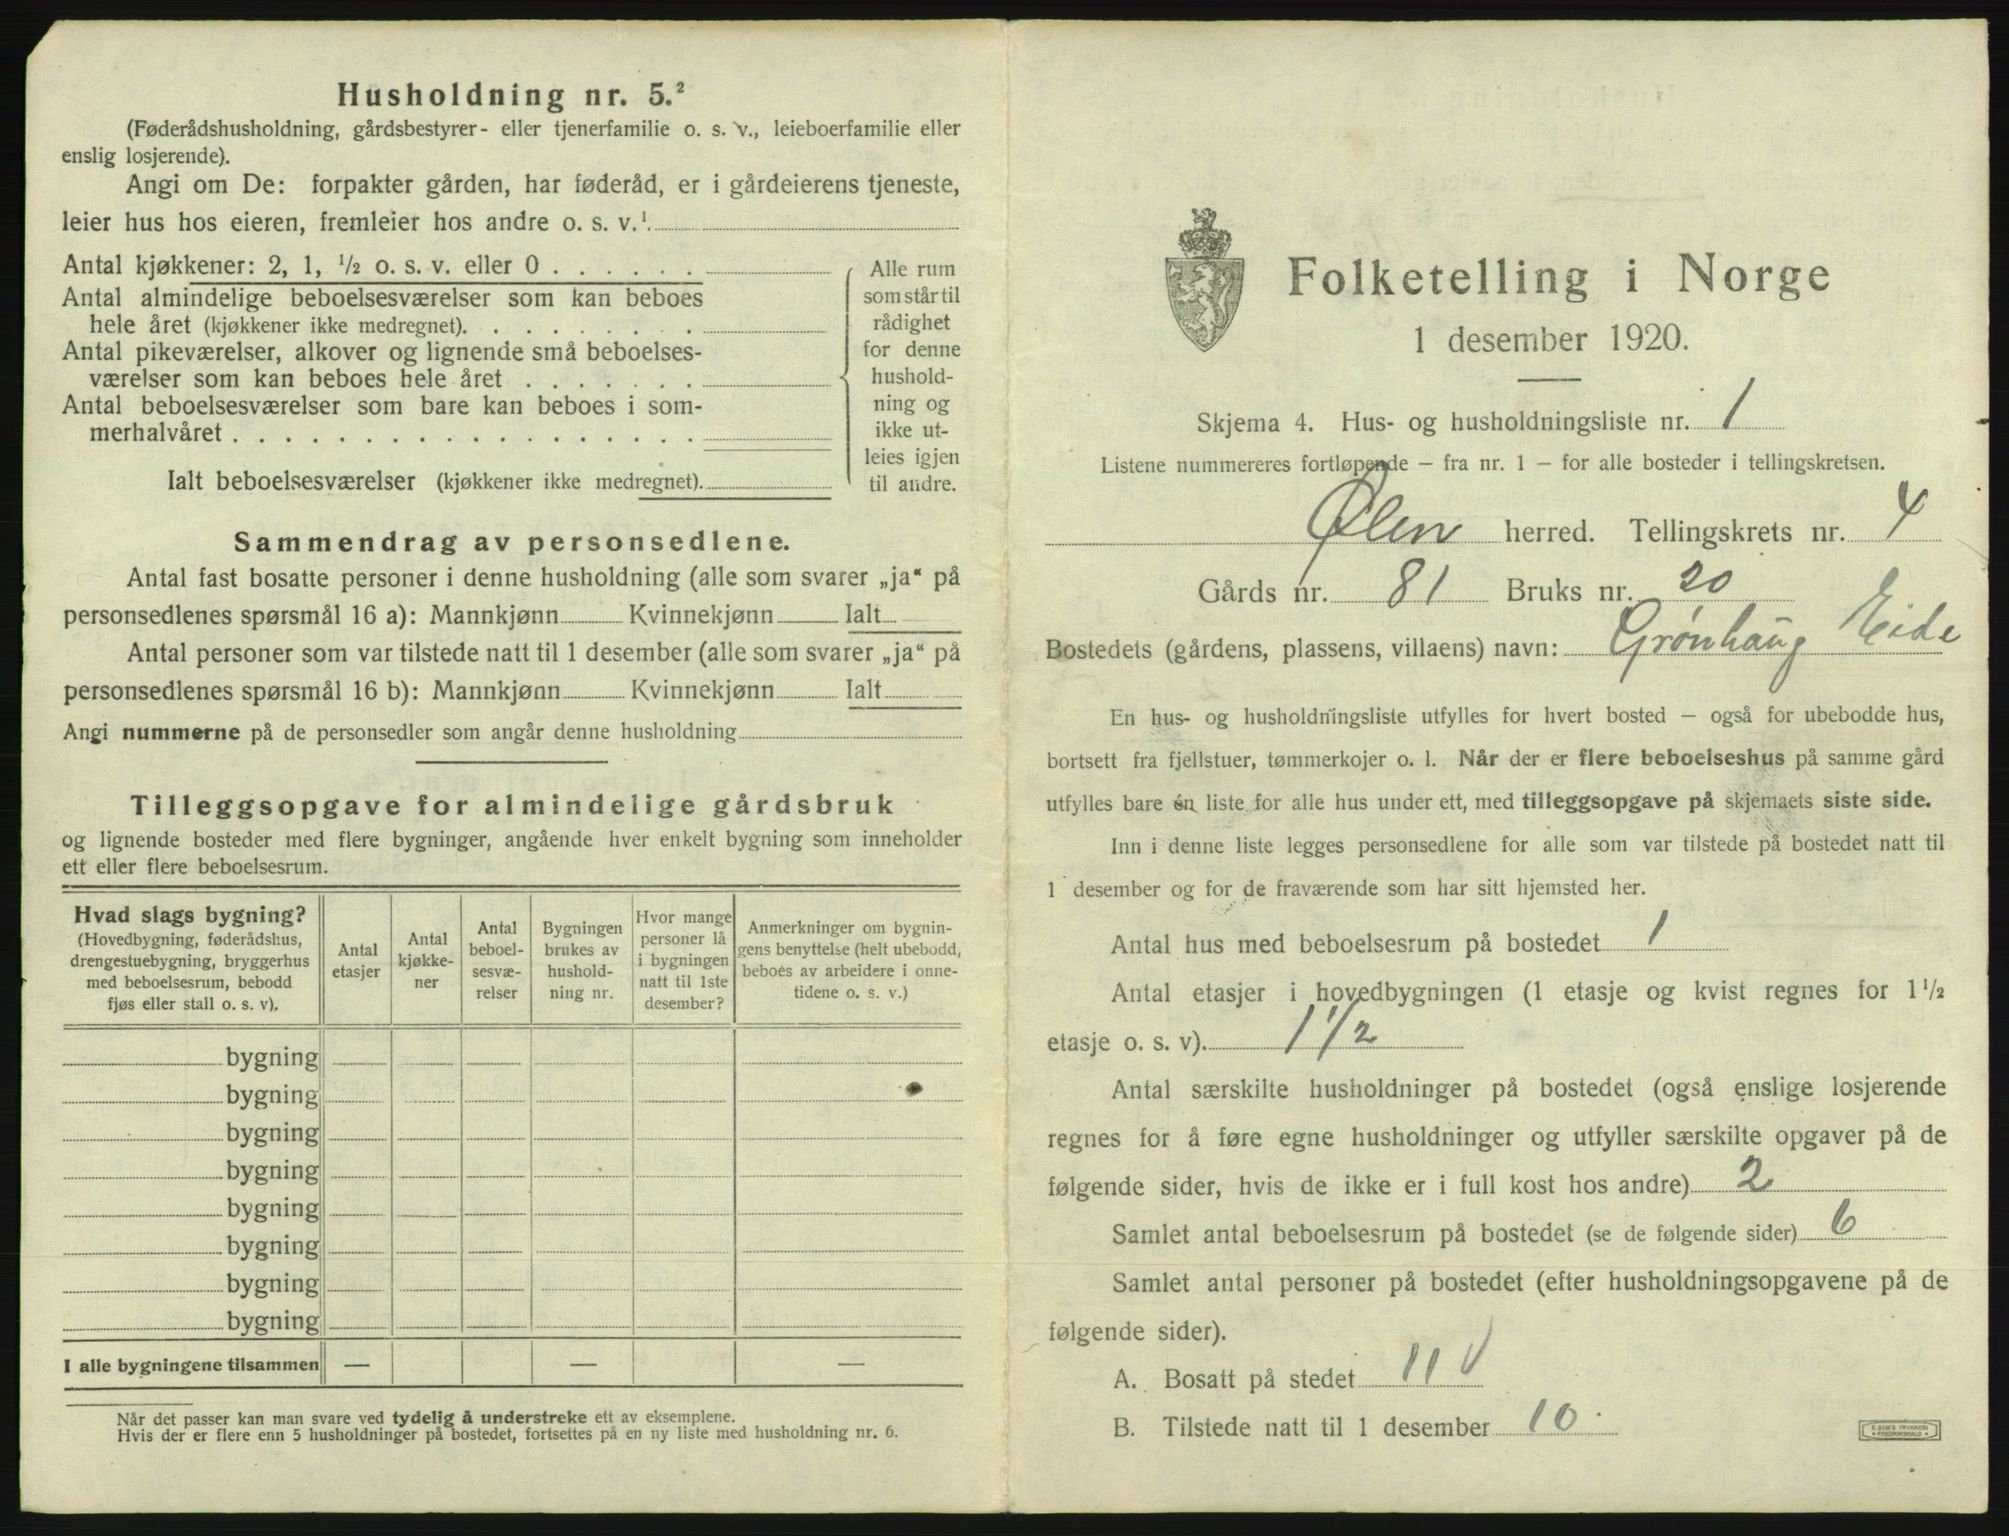 Husholdning nr. 5.²
(Føderådshusholdning, gårdsbestyrer- eller tjenerfamilie o. s. v., leieboerfamilie eller
enslig losjerende).
Angi om De: forpakter gården, har føderåd, er i gårdeierens tjeneste,
leier hus hos eieren, fremleier hos andre o. s. v.¹
Antal kjøkkener: 2, 1, ½ o. s. v. eller 0 . . . . . .
Antal almindelige beboelsesværelser som kan beboes
hele året (kjøkkener ikke medregnet). . . . . . . . .
Antal pikeværelser, alkover og lignende små beboelses-
værelser som kan beboes hele året . . . . . . .
Antal beboelsesværelser som bare kan beboes i som-
merhalvåret . . . . . . . . . . . . . . . . . .
Ialt beboelsesværelser (kjøkkener ikke medregnet).
Alle rum
som står til
rådighet
for denne
hushold-
ning og
ikke ut-
leies igjen
til andre.
Sammendrag av personsedlene.
Antal fast bosatte personer i denne husholdning (alle som svarer „ja“ på
personsedlenes spørsmål 16 a): Mannkjønn Kvinnekjønn Ialt
Antal personer som var tilstede natt til 1 desember (alle som svarer „ja“ på
personsedlenes spørsmål 16 b): Mannkjønn Kvinnekjønn Ialt
Angi nummerne på de personsedler som angår denne husholdning
Tilleggsopgave for almindelige gårdsbruk
og lignende bosteder med flere bygninger, angående hver enkelt bygning som inneholder
ett eller flere beboelsesrum.
Hvad slags bygning?
(Hovedbygning, føderådshus,
drengestuebygning, bryggerhus
med beboelsesrum, bebodd
fjøs eller stall o. s. v).
Antal
etasjer
Antal
kjøkke-
ner
Antal
beboel-
sesvæ-
relser
Bygningen
brukes av
hushold-
ning nr.
Hvor mange
personer lå
i bygningen
natt til 1ste
desember?
Anmerkninger om bygnin-
gens benyttelse (helt ubebodd,
beboes av arbeidere i onne-
tidene o. s. v.)
bygning
bygning
bygning
bygning
bygning
bygning
bygning
bygning
I alle bygningene tilsammen — — —
Når det passer kan man svare ved tydelig å understreke ett av eksemplene.
Hvis der er flere enn 5 husholdninger på bostedet, fortsettes på en ny liste med husholdning nr. 6.
Folketelling i Norge
1 desember 1920.
Skjema 4. Hus- og husholdningsliste nr. 1
Listene nummereres fortløpende – fra nr. 1 – for alle bosteder i tellingskretsen.
Ølen herred. Tellingskrets nr. 4
Gårds nr. 81 Bruks nr. 20
Bostedets (gårdens, plassens, villaens) navn: Grønhaug Eide
En hus- og husholdningsliste utfylles for hvert bosted – også for ubebodde hus,
bortsett fra fjellstuer, tømmerkojer o. l. Når der er flere beboelseshus på samme gård
utfylles bare én liste for alle hus under ett, med tilleggsopgave på skjemaets siste side.
Inn i denne liste legges personsedlene for alle som var tilstede på bostedet natt til
1 desember og for de fraværende som har sitt hjemsted her.
Antal hus med beboelsesrum på bostedet 1
Antal etasjer i hovedbygningen (1 etasje og kvist regnes for 1½
etasje o. s. v). 1 1/2
Antal særskilte husholdninger på bostedet (også enslige losjerende
regnes for å føre egne husholdninger og utfyller særskilte opgaver på de
følgende sider, hvis de ikke er i full kost hos andre) 2
Samlet antal beboelsesrum på bostedet (se de følgende sider) 6
Samlet antal personer på bostedet (efter husholdningsopgavene på de
følgende sider).
A. Bosatt på stedet 11 V
B. Tilstede natt til 1 desember 10